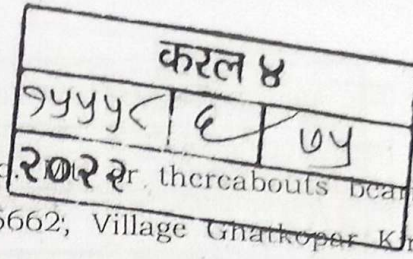 करल ४
१५५५८ ६ ७५
२०२२ r thereabouts bear
6662; Village Ghatkopar Kir